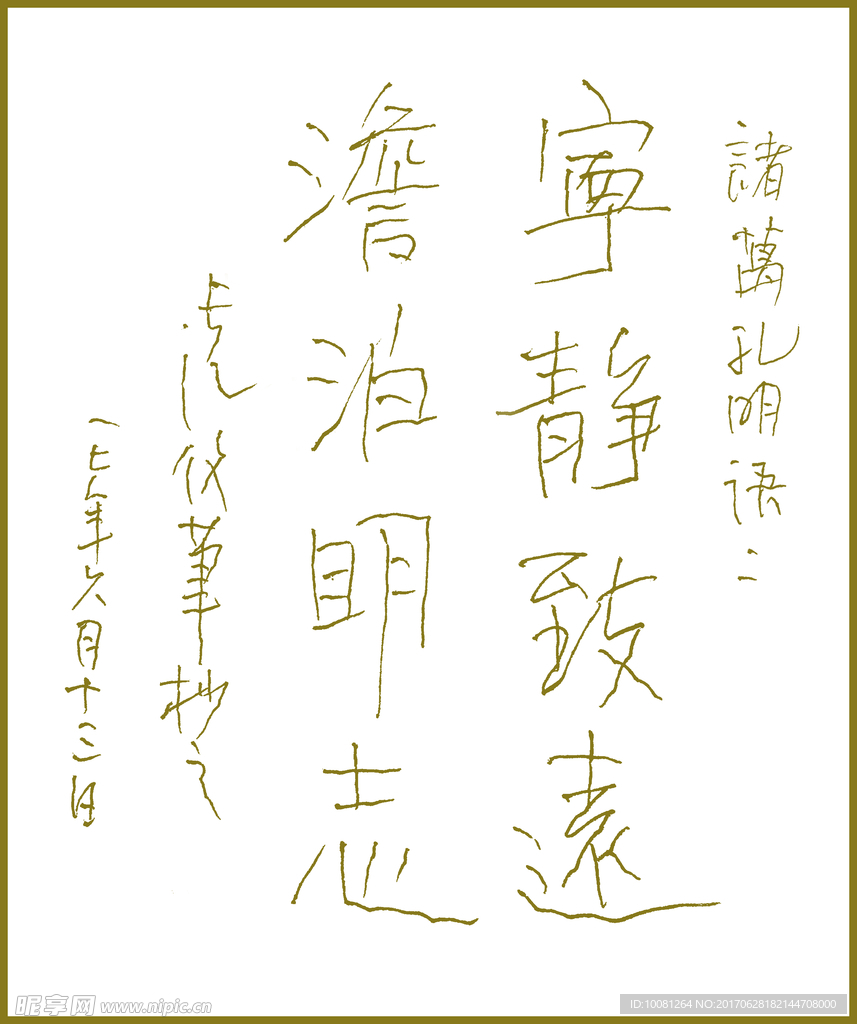 諸葛孔明語:
寧靜致遠
澹泊明志
筆抄之
一七年六月十三日
昵享网 www.nipic.cn
ID:10081264 NO:20170628182144708000